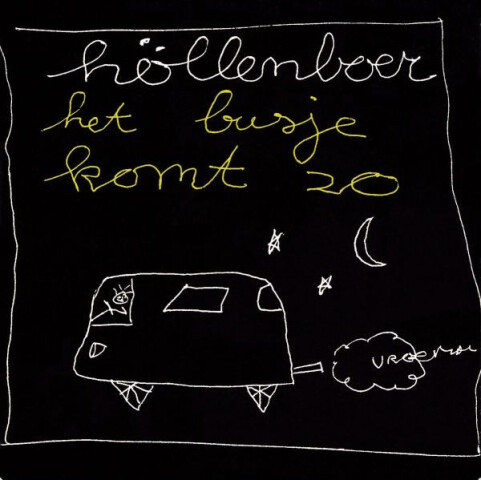 höllenboer
het busje
komt zo
vroem